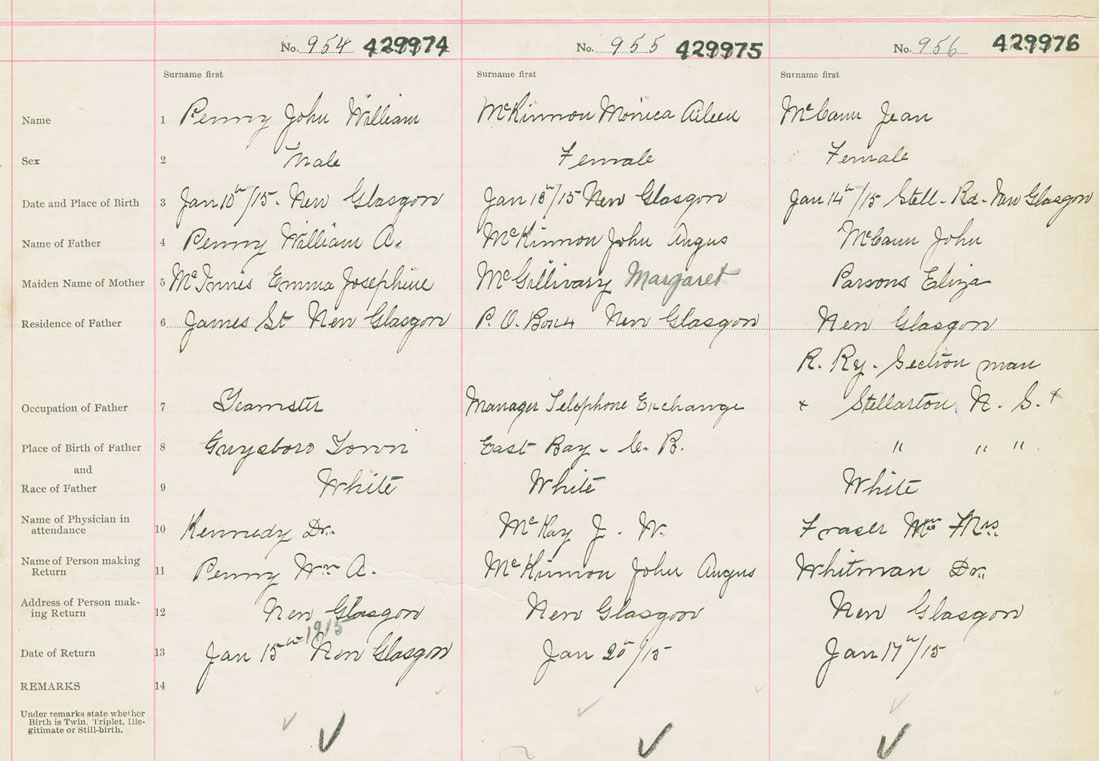 No. 954 429974 No. 955 429975 No. 956 429976
Surname first Surname first Surname first
Name 1 Penny John William McKinnon Monica Aileen McCann Jean
Sex 2 Male Female Female
Date and Place of Birth 3 Jan 10th/15. New Glasgow Jan 18th/15 New Glasgow Jan 14th/15 Stell. Rd. New Glasgow
Name of Father 4 Penny William A. McKinnon John Angus McCann John
Maiden Name of Mother 5 McInnis Emma Josephine McGillivary Margaret Parsons Eliza
Residence of Father 6 James St New Glasgow P. O. Box 4 New Glasgow New Glasgow
R. Ry. Section man
Occupation of Father 7 Teamster Manager Telephone Exchange x Stellarton N. S. x
Place of Birth of Father 8 Guysboro Town East Bay - C. B. " " "
and
Race of Father 9 White White White
Name of Physician in
attendance 10 Kennedy Dr. McKay J. W. Fraser Mrs
Name of Person making
Return 11 Penny Wm A. McKinnon John Angus Whitman Dr.
Address of Person mak-
ing Return 12 New Glasgow New Glasgow New Glasgow
1915
Date of Return 13 Jan 15th New Glasgow Jan 20/15 Jan 17th/15
REMARKS 14
Under remarks state whether
Birth is Twin, Triplet, Ille-
gitimate or Still-birth.